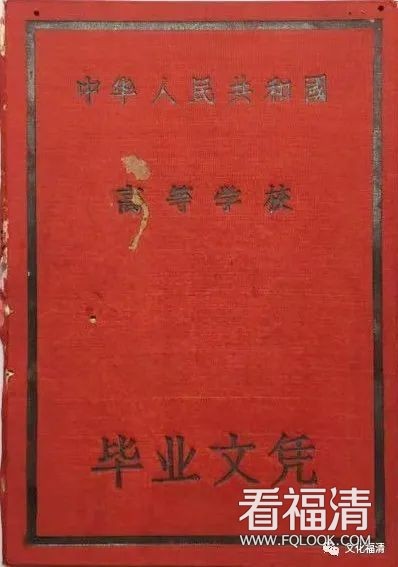 中华人民共和國
高等学校
毕业文凭
看福清
WWW.FQLOOK.COM
文化福清